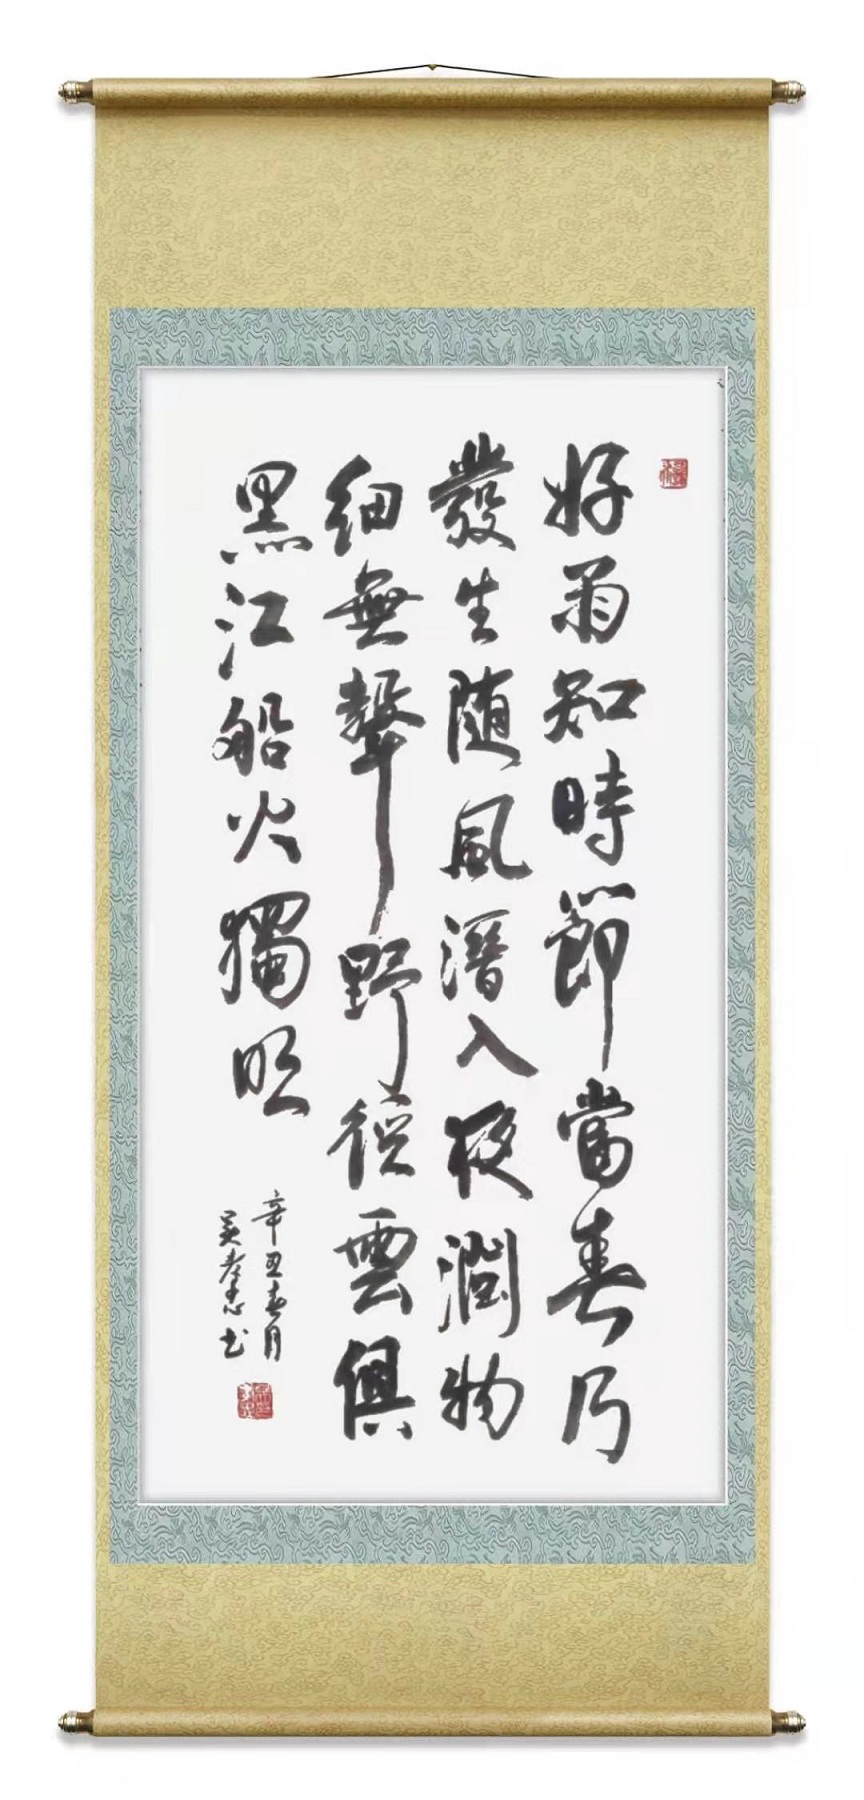 好雨知時節當春乃
發生随風潜入夜潤物
細無聲野徑雲俱
黑江船火獨明
辛丑春月
吴孝忠书